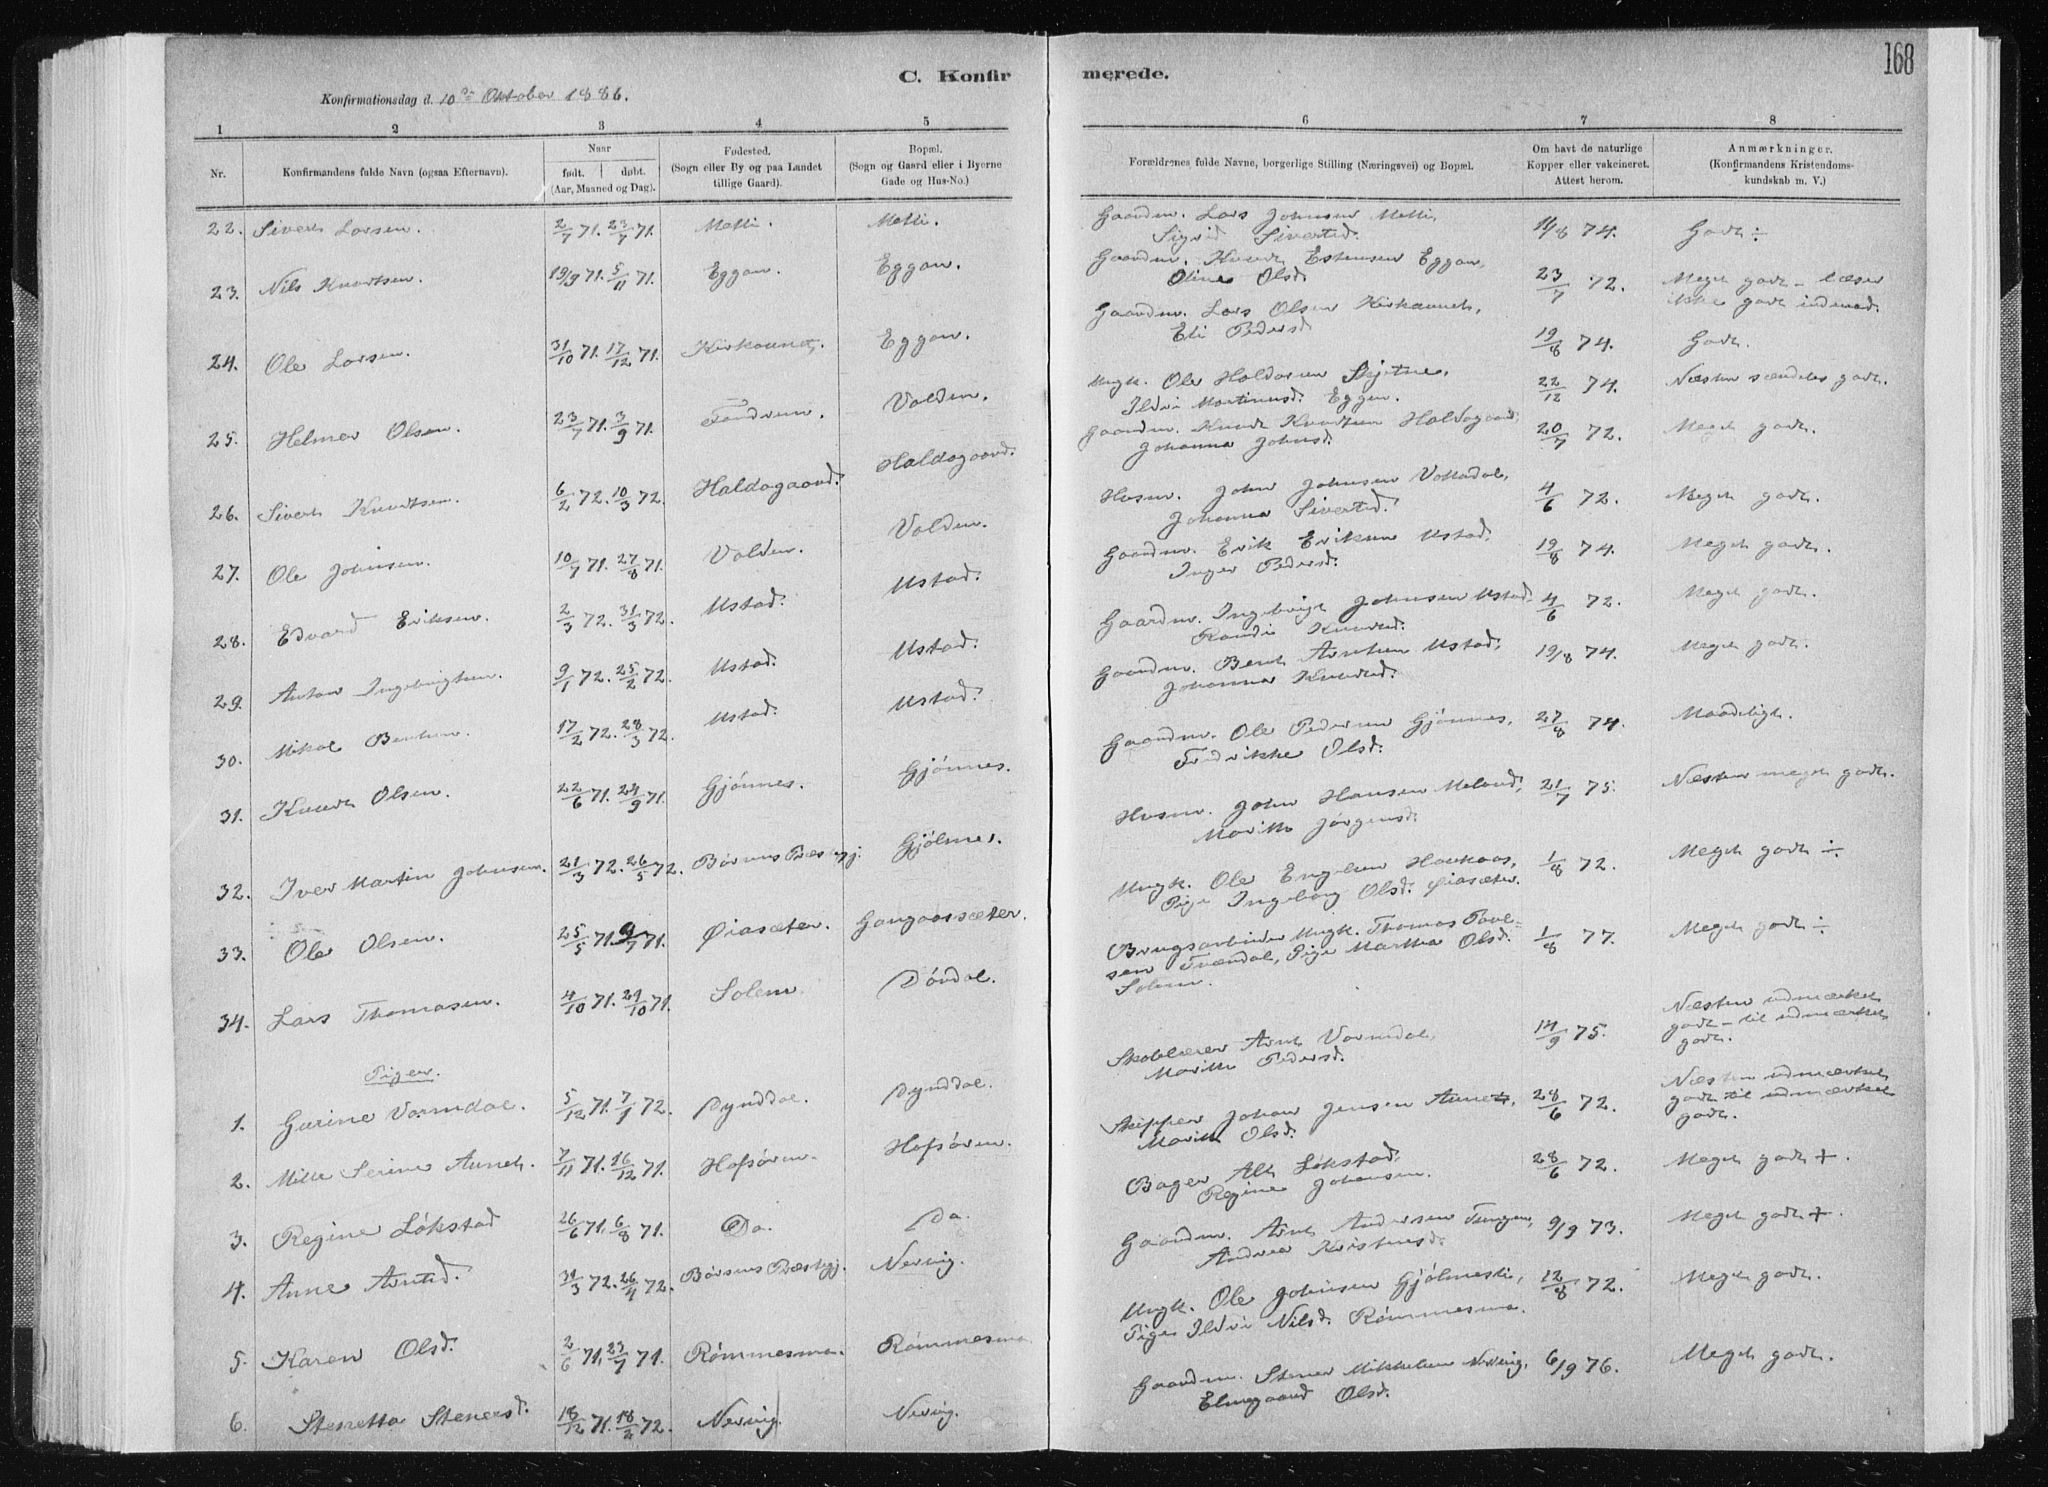 168
C. Konfirmerede.
Konfirmationsdag d. 10de Oktober 1886.
1 2 3 4 5 6 7 8
Nr. Konfirmandens fulde Navn (ogsaa Efternavn). Naar født. døbt. (Aar, Maaned og Dag). Fødested. (Sogn eller By og paa Landet tillige Gaard). Bopæl. (Sogn og Gaard eller i Byerne Gade og Hus-No.) Forældrenes fulde Navne, borgerlige Stilling (Næringsvei) og Bopæl. Om havt de naturlige Kopper eller vakcineret. Attest herom. Anmærkninger. (Konfirmandens Kristendomskundskab m. V.)
22. Sivert Larsen. 2/7 71. 23/7 71. Melli. Melli. Gaardm. Lars Johnsen Melli, Sigrid Sivertsd. 19/8 74. Godt ÷
23. Nils Knudtsen. 19/9 71. 5/11 71. Eggan. Eggan. Gaardm. Knudt Estensen Eggan, Oline Olsd. 23/7 72. Meget godt – læser ikke godt indenad.
24. Ole Larsen. 31/10 71. 17/12 71. Kirkaunet. Eggan. Gaardm. Lars Olsen Kirkaunet, Eli Pedersd. 19/8 74. Godt.
25. Helmer Olsen. 23/7 71. 3/9 71. Volden. Ungk. Ole Haldorsen Skjetne, Ildri Martinusd. Eggan. 22/12 74. Næsten særdeles godt.
26. Sivert Knudtsen. 6/2 72. 10/3 72. Haldogaard. Haldogaard. Gaardm. Knudt Knudtsen Haldogaard, Johanna Johnsd. 20/7 72. Meget godt.
27. Ole Johnsen. 10/7 71. 27/8 71. Volden. Volden. Husm. John Johnsen Voltadal, Johanna Sivertsd. 4/6 72. Meget godt.
28. Edvard Eriksen. 2/3 72. 31/3 72. Ustad. Ustad. Gaardm. Erik Eriksen Ustad, Inger Pedersd. 19/8 74. Meget godt.
29. Anton Ingebrigtsen. 9/1 72. 25/2 72. Ustad. Ustad. Gaardm. Ingebrigt Johnsen Ustad, Randi Knudtsd. 4/6 72. Meget godt.
30. Mikal Bentsen. 17/2 72. 28/3 72. Ustad. Ustad. Gaardm. Bent Arntsen Ustad, Johanna Knudtsd. 19/8 74. Meget godt.
31. Knudt Olsen. 22/6 71. 24/9 71. Gjønnes. Gjønnes. Gaardm. Ole Pedersen Gjønnes, Fredrikke Olsd. 27/8 74. Maadeligt.
32. Iver Martin Johnsen. 21/3 72. 26/5 72. Børsens Præstgj. Gjølmes. Husm. John Hansen Meland, Marith Jørgensd. 21/7 75. Næsten meget godt.
33. Ole Olsen. 25/5 71. 9/7 71. Øiasæter. Gangaassæter. Ungk. Ole Engelsen Haukaas, Pige Ingeborg Olsd. Øiasæter. 1/8 72. Meget godt ÷
34. Lars Thomasen. 4/10 71. 29/10 71. Solem. Dørdal. Brugsarbeider Ungk. Thomas Paulsen Trøndal, Pige Martha Olsd. Solem. 1/8 77. Meget godt ÷
Piger.
1. Gurine Vormdal. 5/12 71. 7/1 72. Dynddal. Dynddal. Skolelærer Arnt Vormdal, Marith Pedersd. 14/9 75. Næsten udmærket godt – til udmærket godt.
2. Mille Serine Aunet. 7/11 71. 16/12 71. Hofsøren. Hofsøren. Skipper Johan Jensen Aunet, Marith Olsd. 28/6 72. Næsten udmærket godt til udmærket godt.
3. Regine Løkstad 26/6 71. 6/8 71. Do. Do. Bager Alt Løkstad, Regine Johansen. 28/6 72. Meget godt +.
4. Anne Arntsd. 31/3 72. 26/4 72. Børsens Præstgj. Nerwig. Gaardm. Arnt Andersen, Andrea Kristensd. 9/9 73. Meget godt +.
5. Karen Olsd. 2/6 71. 23/7 71. Rømmesmo. Rømmesmo Ungk. Ole Johnsen Gjølmesli, Pige Ildri Nilsd. Rømmesmo. 12/8 72. Meget godt.
6. Stenetta Stenersd. 18/12 71. 18/2 72. Nervig. Nervig. Gaardm. Stener Mikkelsen Nervig, Elengaard Olsd. 6/9 76. Meget godt.